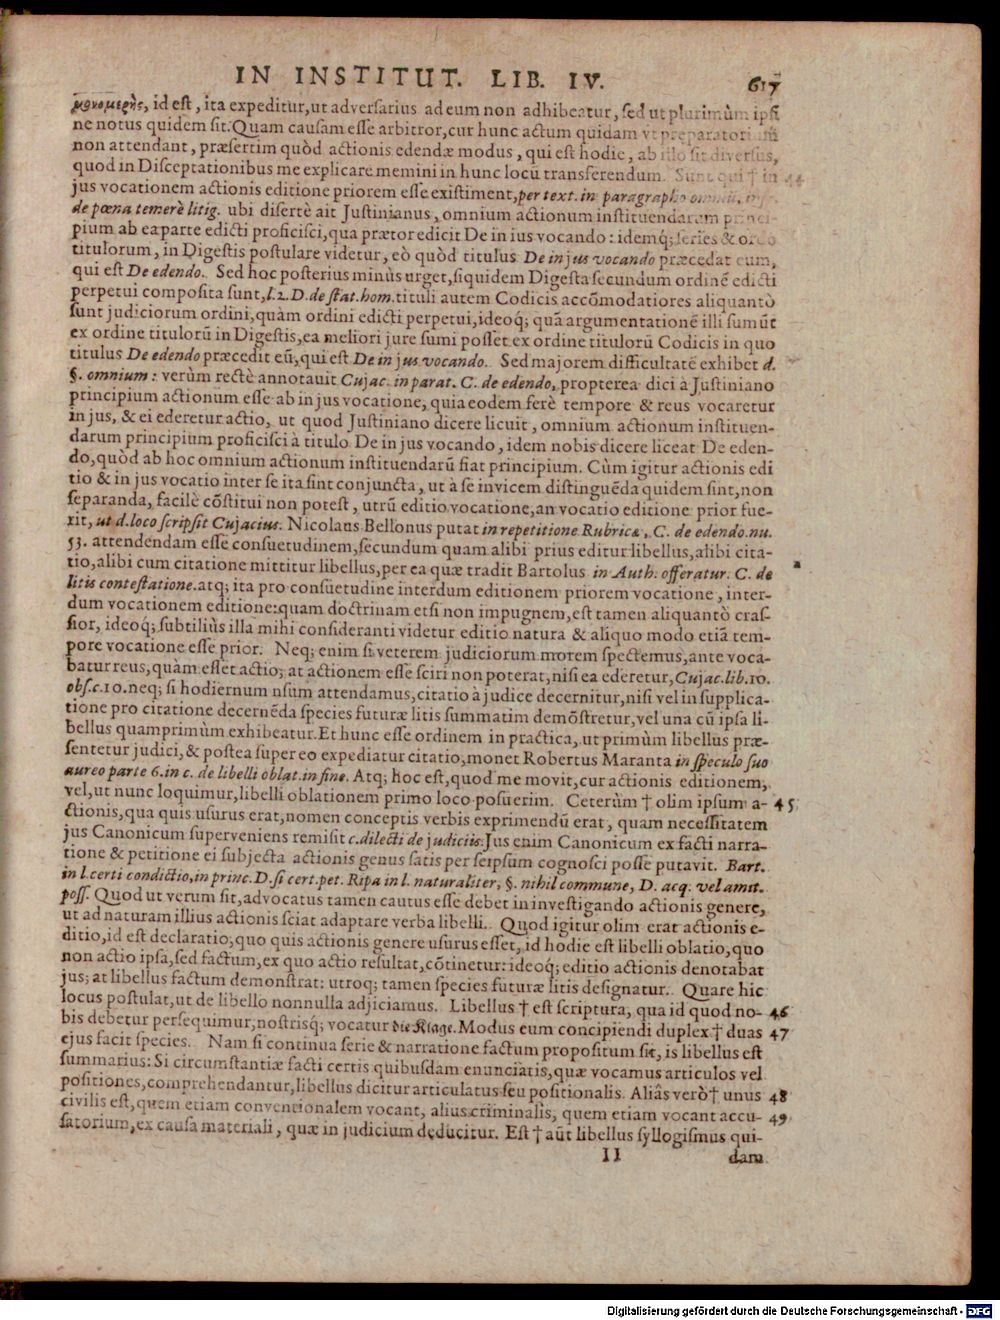 IN INSTITUT. LIB. IV. 617
μονομερὴς, id est, ita expeditur, ut adversarius ad eum non adhibeatur, sed ut plurimùm ipsi
ne notus quidem sit. Quam causam esse arbitror, cur hunc actum quidam ut preparatorium
non attendant, præsertim quòd actionis edendæ modus, qui est hodie, ab illo sit diversus,
quod in Disceptationibus me explicare memini in hunc locū transferendum. Sunt qui † in 44
jus vocationem actionis editione priorem esse existiment, per text. in paragrapho omniū,
de pœna temerè litig. ubi disertè ait Justinianus, omnium actionum instituendarum princi-
pium ab ea parte edicti proficisci, qua prætor edicit De in ius vocando: idemq; series & ordo
titulorum, in Digestis postulare videtur, eò quòd titulus De in jus vocando præcedat eum,
qui est De edendo. Sed hoc posterius minùs urget, siquidem Digesta secundum ordinē edicti
perpetui composita sunt, l. 2. D. de stat. hom. tituli autem Codicis accōmodatiores aliquantò
sunt judiciorum ordini, quàm ordini edicti perpetui, ideoq; quā argumentationē illi sumūt
ex ordine titulorū in Digestis, ea meliori jure sumi posset ex ordine titulorū Codicis in quo
titulus De edendo præcedit eū, qui est De in jus vocando. Sed majorem difficultatē exhibet d.
§. omnium: verùm rectè annotauit Cujac. in parat. C. de edendo, propterea dici à Justiniano
principium actionum esse ab in jus vocatione, quia eodem ferè tempore & reus vocaretur
in jus, & ei ederetur actio, ut quod Justiniano dicere licuit, omnium actionum instituen-
darum principium proficisci à titulo De in jus vocando, idem nobis dicere liceat De eden-
do, quòd ab hoc omnium actionum instituendarū fiat principium. Cùm igitur actionis edi
tio & in jus vocatio inter se ita sint conjuncta, ut à se invicem distinguēda quidem sint, non
separanda, facilè cōstitui non potest, utrū editio vocatione, an vocatio editione prior fue-
rit, ut d. loco scripsit Cujacius. Nicolaus Bellonus putat in repetitione Rubricæ, C. de edendo. nu.
53. attendendam esse consuetudinem, secundum quam alibi prius editur libellus, alibi cita-
tio, alibi cum citatione mittitur libellus, per ea quæ tradit Bartolus in Auth. offeratur. C. de
litis contestatione. atq; ita pro consuetudine interdum editionem priorem vocatione, inter-
dum vocationem editione: quam doctrinam etsi non impugnem, est tamen aliquantò cras-
sior, ideoq; subtiliùs illa mihi consideranti videtur editio natura & aliquo modo etiā tem-
pore vocatione esse prior. Neq; enim si veterem judiciorum morem spectemus, ante voca-
batur reus, quàm esset actio; at actionem esse sciri non poterat, nisi ea ederetur, Cujac. lib. 10.
obs. c. 10. neq; si hodiernum usum attendamus, citatio à judice decernitur, nisi vel in supplica-
tione pro citatione decernēda species futuræ litis summatim demōstretur, vel una cū ipsa li-
bellus quamprimùm exhibeatur. Et hunc esse ordinem in practica, ut primùm libellus præ-
sentetur judici, & postea super eo expediatur citatio, monet Robertus Maranta in speculo suo
aureo parte 6. in c. de libelli oblat. in fine. Atq; hoc est, quod me movit, cur actionis editionem,
vel, ut nunc loquimur, libelli oblationem primo loco posuerim. Ceterùm † olim ipsum a- 45
ctionis, qua quis usurus erat, nomen conceptis verbis exprimendū erat, quam necessitatem
jus Canonicum superveniens remisit c. dilecti de judiciis: Jus enim Canonicum ex facti narra-
tione & petitione ei subjecta actionis genus satis per seipsum cognosci posse putavit. Bart.
in l. certi condictio, in princ. D. si cert. pet. Ripa in l. naturaliter, §. nihil commune, D. acq. vel amit.
poss. Quod ut verum sit, advocatus tamen cautus esse debet in investigando actionis genere,
ut ad naturam illius actionis sciat adaptare verba libelli. Quod igitur olim erat actionis e-
ditio, id est declaratio, quo quis actionis genere usurus esset, id hodie est libelli oblatio, quo
non actio ipsa, sed factum, ex quo actio resultat, cōtinetur: ideoq; editio actionis denotabat
jus; at libellus factum demonstrat: utroq; tamen species futuræ litis designatur. Quare hic
locus postulat, ut de libello nonnulla adjiciamus. Libellus † est scriptura, qua id quod no- 46
bis debetur persequimur, nostrisq; vocatur die Klage. Modus eum concipiendi duplex † duas 47
ejus facit species. Nam si continua serie & narratione factum propositum sit, is libellus est
summarius: Si circumstantiæ facti certis quibusdam enunciatis, quæ vocamus articulos vel
positiones, comprehendantur, libellus dicitur articulatus seu positionalis. Aliâs verò † unus 48
civilis est, quem etiam conventionalem vocant, alius criminalis, quem etiam vocant accu- 49
satorium, ex causa materiali, quæ in judicium deducitur. Est † aūt libellus syllogismus qui-
II dam
Digitalisierung gefördert durch die Deutsche Forschungsgemeinschaft - DFG